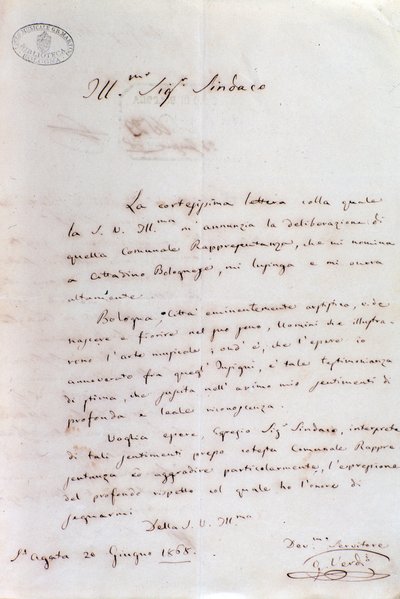 BIBLIOTECA
Ill.mo Sig.r Sindaco
La cortesissima lettera colla quale
la S. V. Ill.ma m'annunzia la deliberazione di
quella Comunale Rappresentanza, che mi nomina
a Cittadino Bolognese, mi lusinga e mi onora
altamente.
Bologna, Città eminentemente artistica, vide
nascere e fiorire nel suo seno, Uomini che illustra-
rono l'arte musicale; ond'è, che l'essere io
annoverato fra quegl'Insigni, è tale testimonianza
di stima, che suscita nell'animo mio sentimenti di
profonda e leale riconoscenza.
Voglia essere, Egregio Sig.r Sindaco, interprete
di tali sentimenti presso cotesta Comunale Rappre
sentanza ed aggradire particolarmente, l'espressione
del profondo rispetto col quale ho l'onore di
segnarmi
Della S. V. Ill.ma
Dev.mo Servitore
G. Verdi
S.t Agata 20 Giugno 1868.